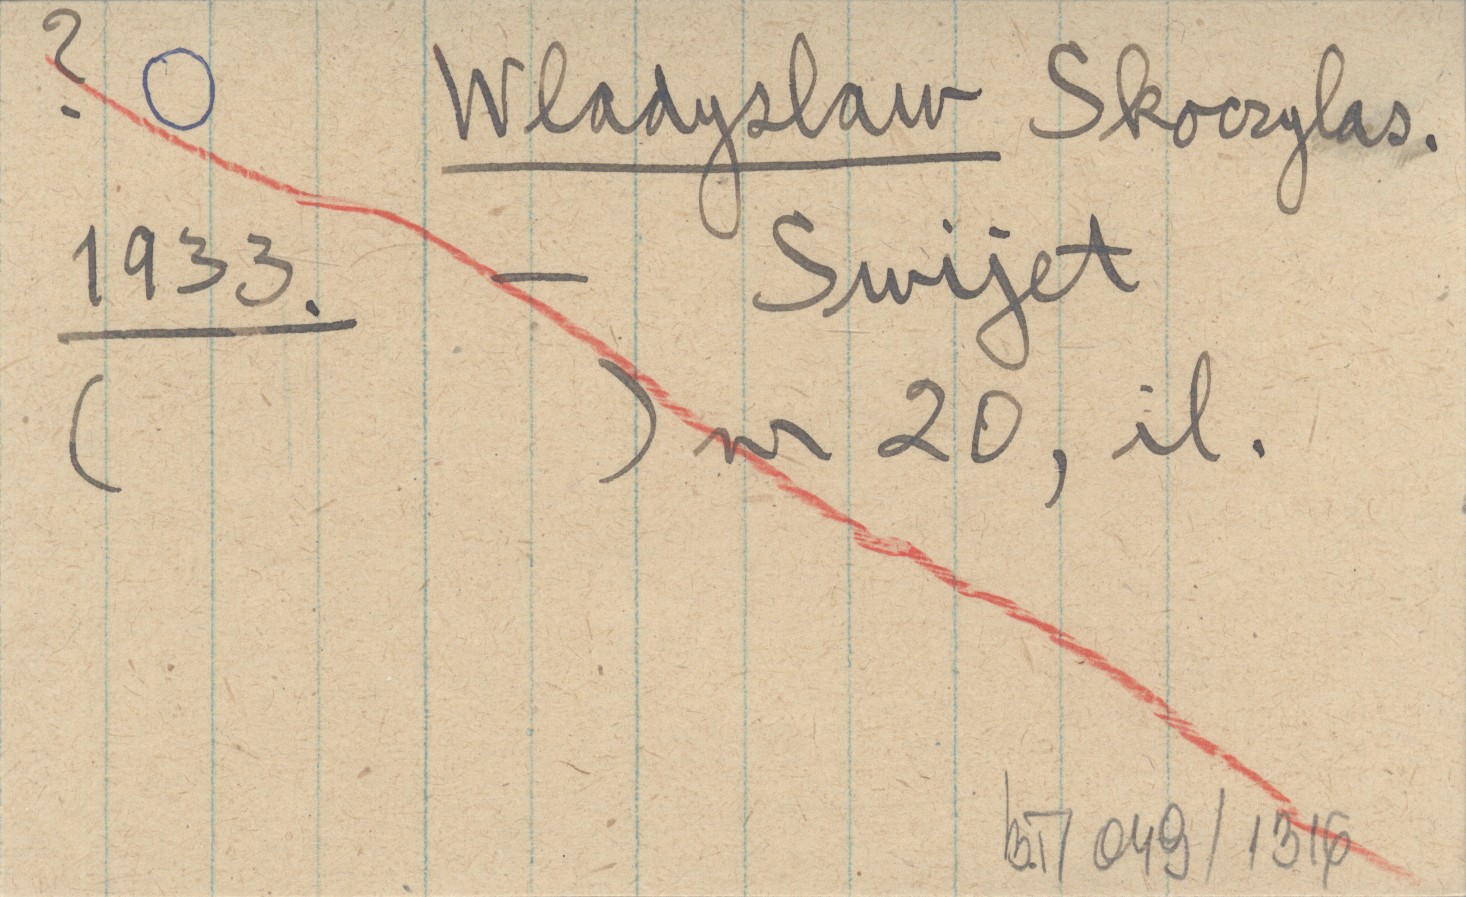 ? O Wladyslaw Skoczylas.
1933. — Swijet
( ) nr 20, il.
049/1316